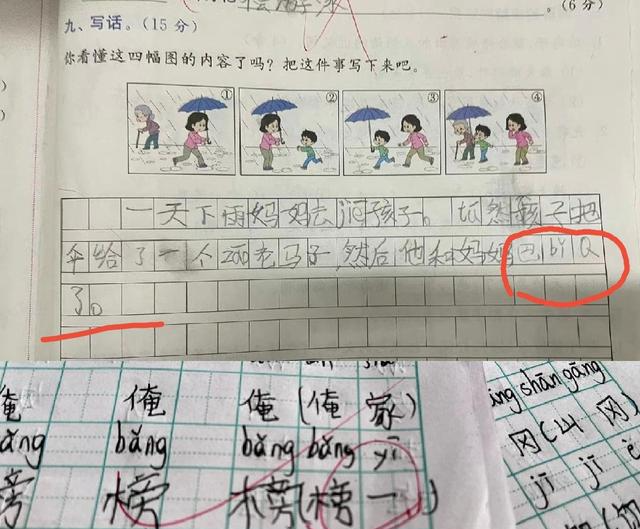 (6分)
九、写话。(15分)
你看懂这四幅图的内容了吗？把这件事写下来吧。
① ② ③ ④
一天下雨妈妈去 孩子。 然孩子把
伞给了一个 老 子,然后他和妈妈巴bìQ
了。
俺 俺 俺(俺家)
ǎng bǎng bǎng bǎng yī
榜 榜(榜一)
ing shān gāng
冈(山冈)
jī jī